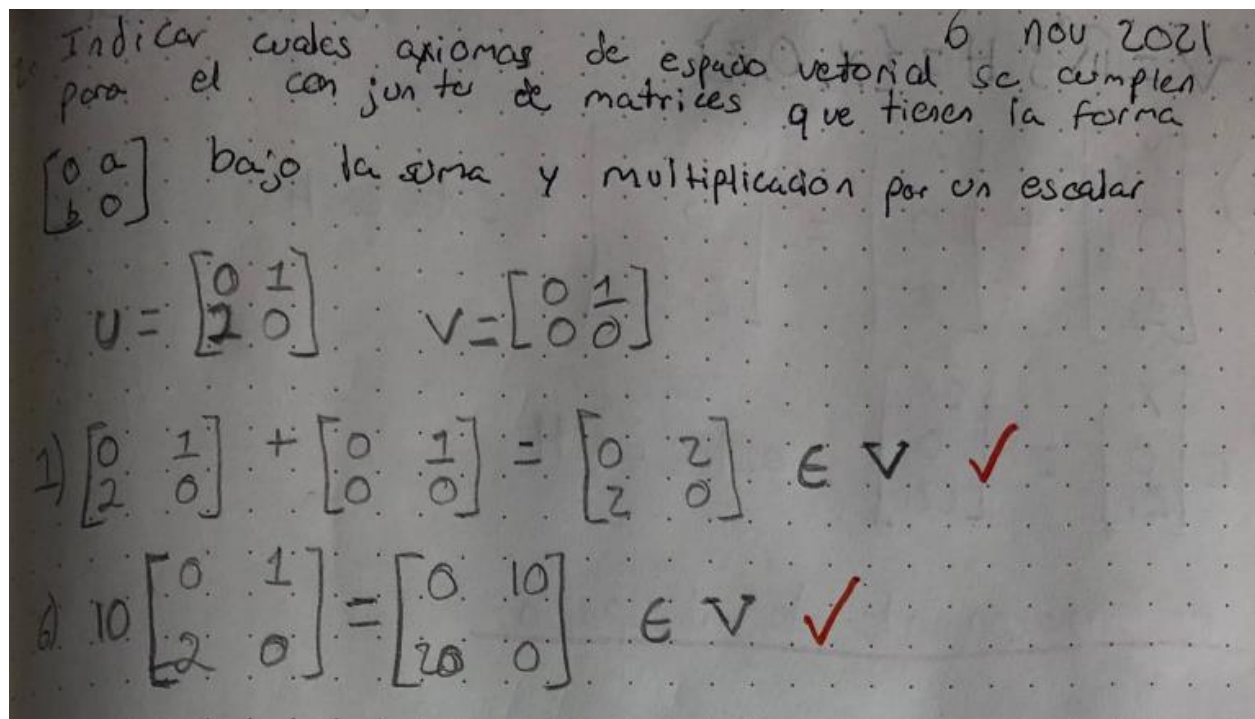 6 nov 2021
Indicar cuales axiomas de espacio vetorial se cumplen
para el con junto de matrices que tienen la forma
[0 a; b 0] bajo la suma y multiplicación por un escalar
U = [0 1; 2 0] V = [0 1; 0 0]
1) [0 1; 2 0] + [0 1; 0 0] = [0 2; 2 0] ∈ V ✓
6) 10 [0 1; 2 0] = [0 10; 20 0] ∈ V ✓